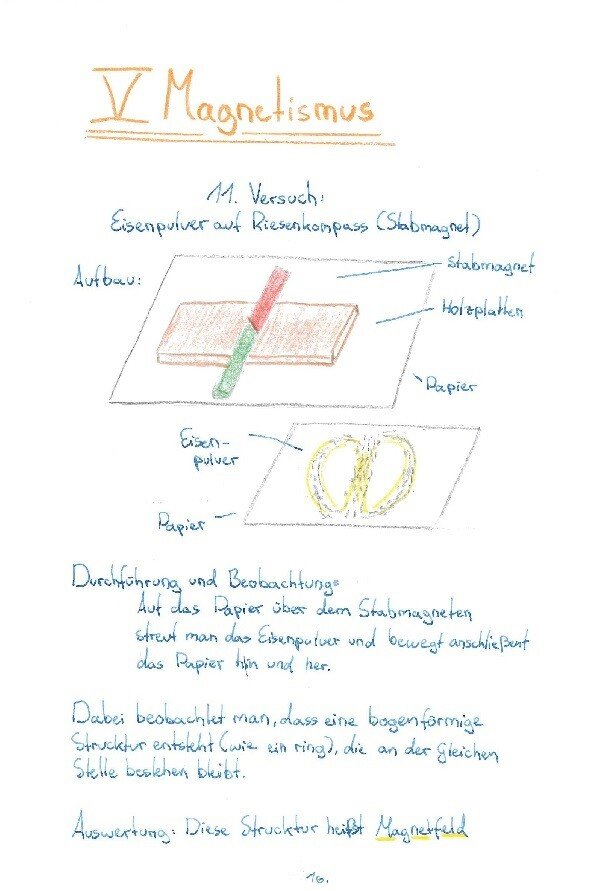 V Magnetismus
11. Versuch:
Eisenpulver auf Riesenkompass (Stabmagnet)
Aufbau:
Stabmagnet
Holzplatten
Papier
Eisen-
pulver
Papier
Durchführung und Beobachtung:
Auf das Papier über dem Stabmagneten
streut man das Eisenpulver und bewegt anschließent
das Papier hin und her.
Dabei beobachtet man, dass eine bogenförmige
Struktur entsteht (wie ein ring), die an der gleichen
Stelle bestehen bleibt.
Auswertung: Diese Struktur heißt Magnetfeld
16.